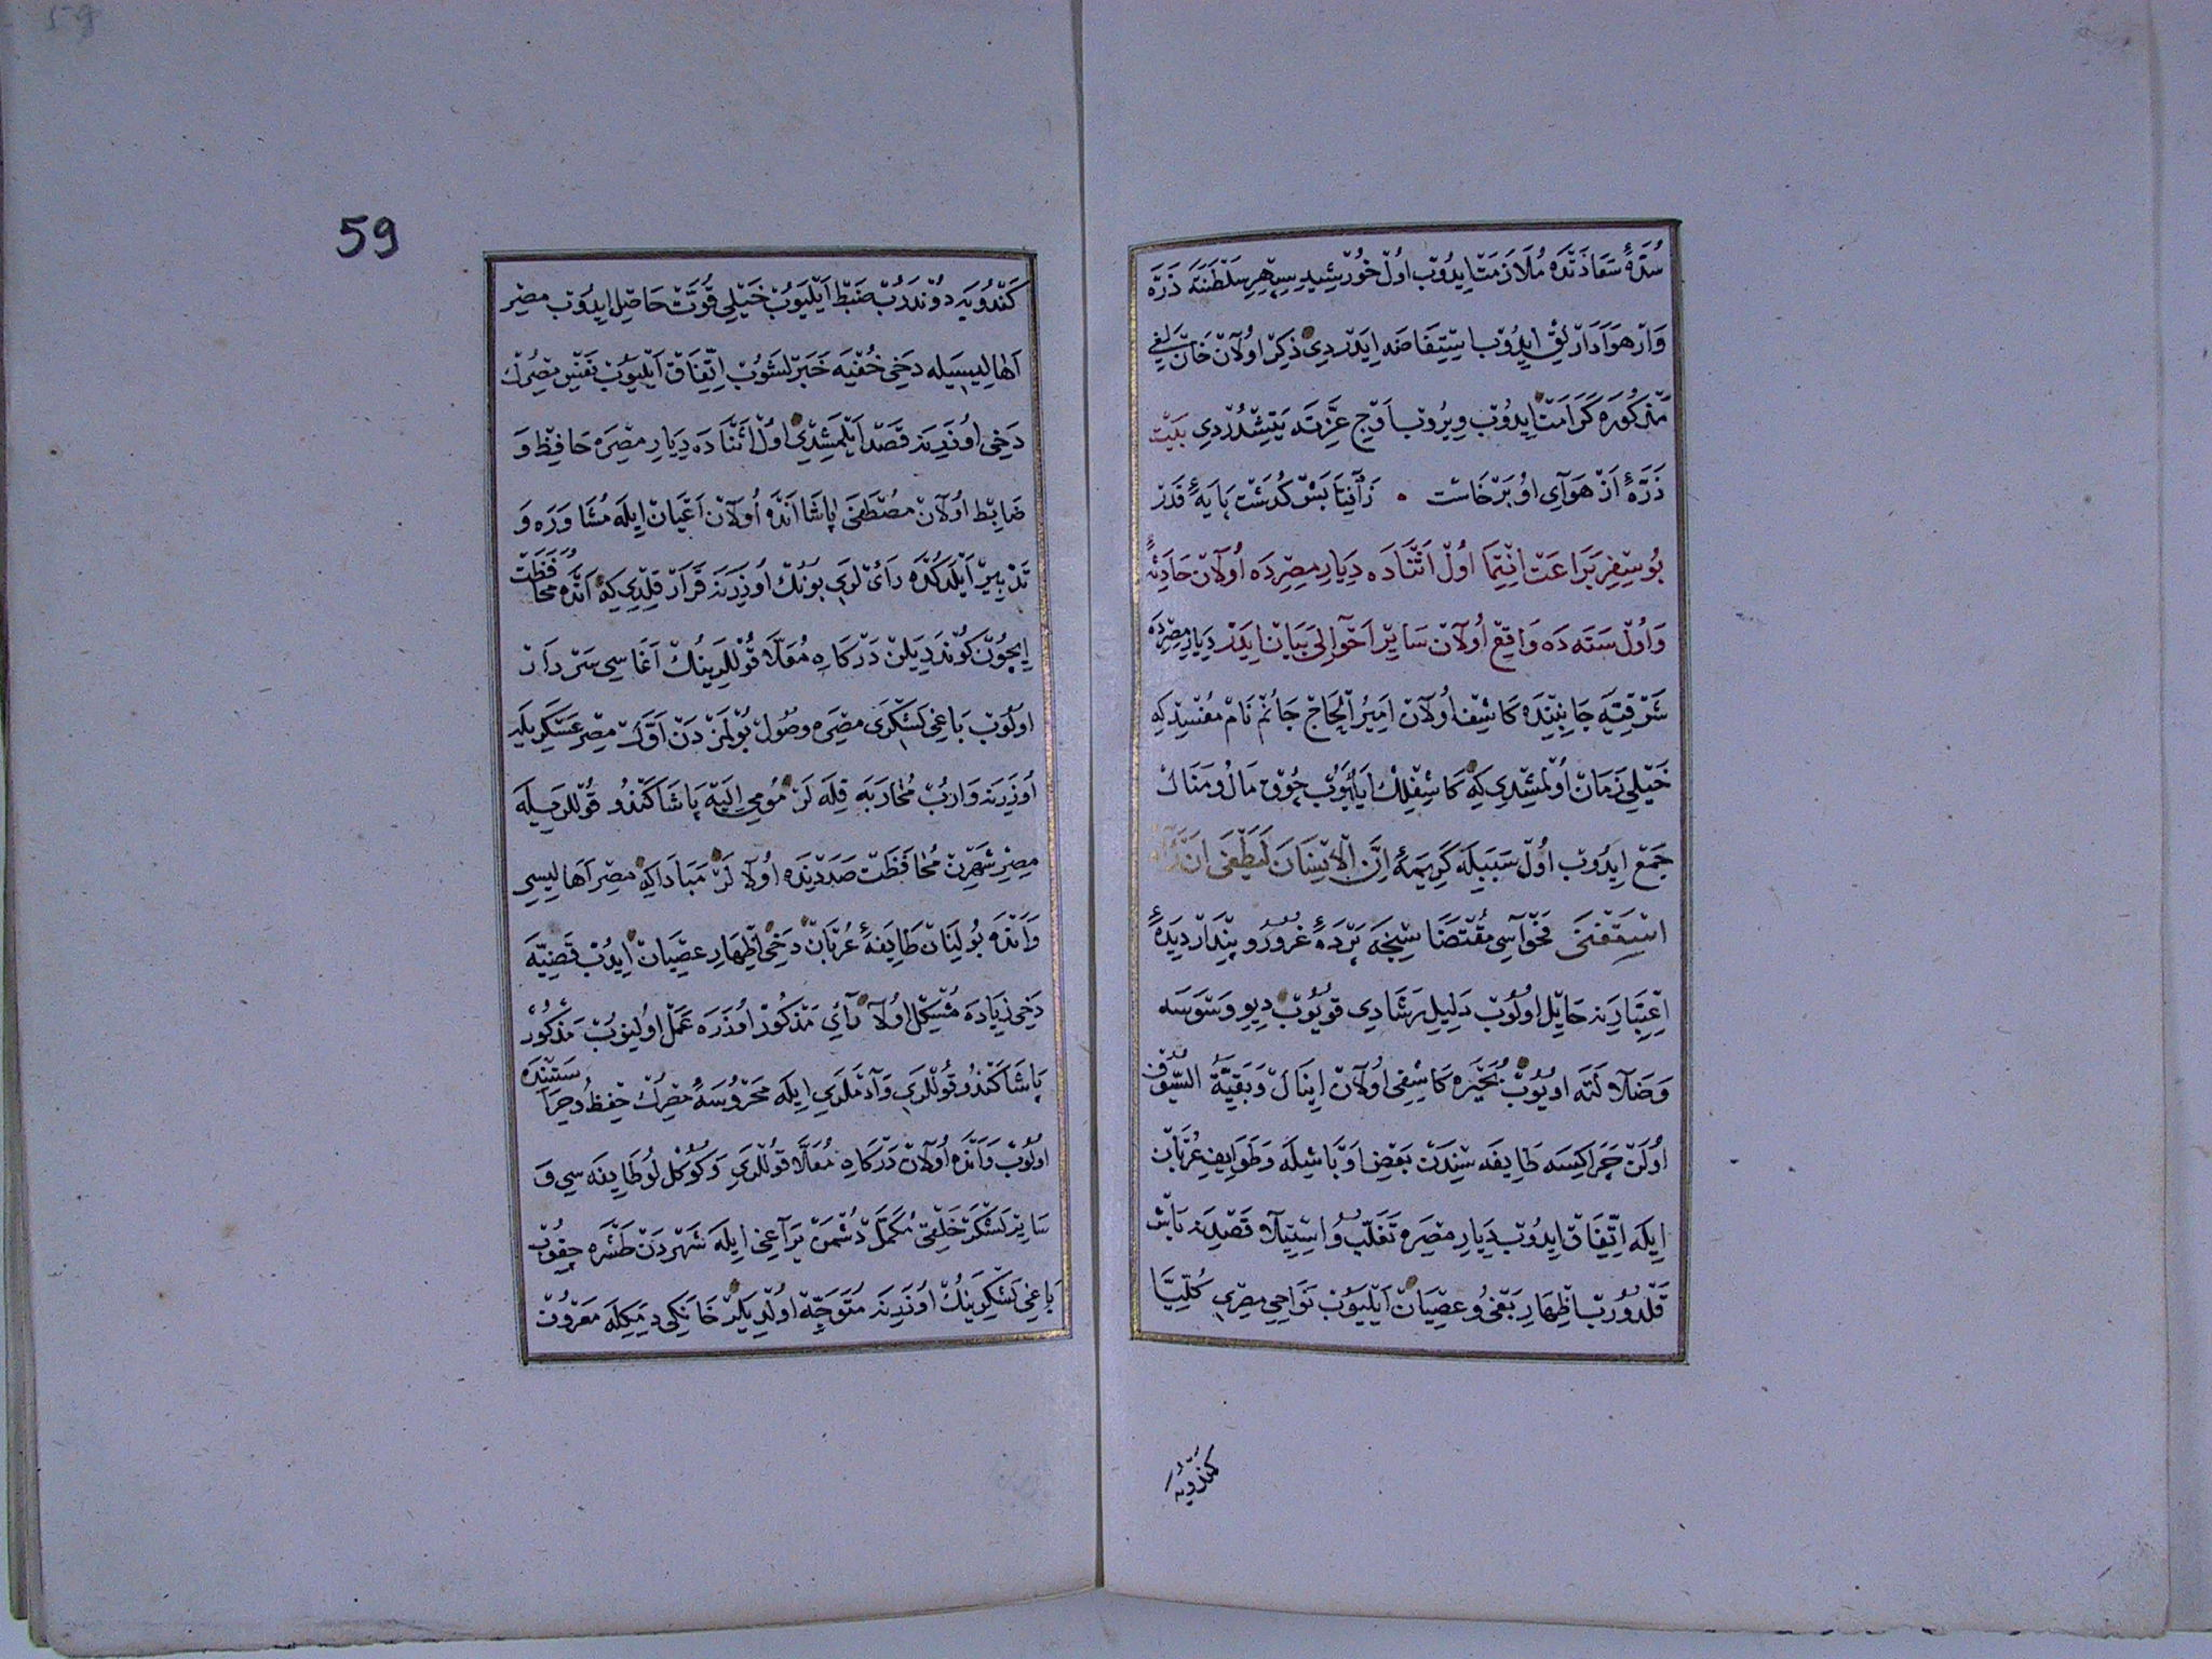 سُدَّۀٔ سَعَادَتنَده مُلَازَمَتْ اِيدُوبْ اُولْ خُورْشِيدِ سِپِهْرِ سَلْطَنَتَه ذَرَّه
وَارْ هَوَادَارْلِقْ اِيدُوبْ اِسْتِفَاضَه اِيدَرْدِى ذِكْرْ اُولَانْ خَانْ سَلَفِى
مَذْكُورَه كَرَامَتْ اِيدُوبْ وِيرُوبْ اَوْجِ عِزَّتَه يَتِشْدُرْدِى بَيْت
ذَرَّۀٔ اَزْ هَوَآىِ اُو بَرْخَاسْت زَآفِتَابَشْ كُذَشْت پَايَۀٔ قَدْر
بُو سِفِرِ بَرَاعَتْ اِنْتِمَا اُولْ اَثْنَادَه دِيَارِ مِصِرْدَه اُولَانْ حَادِثَۀٔ
وَاُولْ سَنَه دَه وَاقِعْ اُولَانْ سَايِرْ اَحْوَالِى بَيَانْ اِيدَرْ دِيَارِ مِصِرْدَه
شَرْقِيَّه جَانِبِنْدَه كَاشِفْ اُولَانْ اَمِيرُ الْحَاجْ جَانُمْ نَامْ مُفْسِدْ كِه
خَيْلِى زَمَانْ اُولْمِشْدِى كِه كَاشِفْلِكْ اَيْلَيُوبْ چُوقْ مَالُ و مَنَالْ
جَمْع اِيدُوبْ اُولْ سَبَبِيلَه كَرِيمَۀٔ اِنَّ الْاِنْسَانَ لَيَطْغَى اَنْ رَآهُ
اسْتَغْنَى فَحْوَاسِى مُقْتَضَاسِنْجَه پَرْدَۀٔ غُرُورُ و پِنْدَارْ دِيدَۀٔ
اِعْتِبَارِينَه حَايِلْ اُولُوبْ دَلِيلِ رَشَادِى قُويُوبْ دِيوِ وَسْوَسَه
وَضَلَالَتَه اُويُوبْ بُحَيْرَه كَاشِفِى اُولَانْ اِينَالْ وَبَقِيَّةُ السُّيُوفْ
اُولَنْ چَرَاكِسَه طَايِفَه سِنْدَنْ بَعْضِ اَوْبَاشِيلَه وَطَوَايِفِ عُرْبَانْ
اِيلَه اِتِّفَاقْ اِيدُوبْ دِيَارِ مِصِرَه تَغَلُّبُ و اِسْتِيلَا قَصْدِينَه بَاشْ
قَلْدُورُبْ اِظْهَارِ بَغْىُ و عِصْيَانْ اَيْلَيُوبْ نَوَاحِىِ مِصْرِى كُلِّيًّا
كندويه
59
كَنْدُويَه دُونْدَرُبْ ضَبْطْ اَيْلَيُوبْ خَيْلِى قُوَّتْ حَاصِلْ اِيدُوبْ مِصِرْ
اَهَالِيسِيلَه دَخِى خُفْيَه خَبَرْلَشُوبْ اِتِّفَاقْ اَيْلَيُوبْ نَفْسِ مِصْرُكْ
دَخِى اُوزَرِينَه قَصْدْ اَيْلَمِشْدِى اُولْ اَثْنَادَه دِيَارِ مِصِرَه حَافِظْ وَ
ضَابِطْ اُولَانْ مُصْطَفَى پَاشَا اَنْدَه اُولَانْ اَعْيَانْ اِيلَه مُشَاوَرَه وَ
تَدْبِيرْ اَيْلَدُكْدَه رَأىْ لَرِى بُونُكْ اُوزَرِينَه قَرَارْ قِلْدِى كِه اَنْدَه مُحَافَظَتْ
اِيچُونْ كُونْدَرِيلَنْ دَرْكَاهِ مُعَلَّا قُولْلَرِينُكْ اَغَاسِى سَرْدَارْ
اُولُوبْ بَاغِى لَشْكَرِى مِصِرَه وُصُولْ بُولْمَزْدَنْ اَوَّلْ مِصِرْ عَسْكَرِيلَه
اُوزَرِينَه وَارُبْ مُحَارَبَه قِلَه لَرْ مُومَى اِلَيْهْ پَاشَا كَنْدُو قُولْلَرِيلَه
مِصِرْ شَهْرِنْ مُحَافَظَتْ صَدَدِنْدَه اُولَا لَرْ مَبَادَا كِه مِصِرْ اَهَالِيسِى
وَاَنْدَه بُولِنَانْ طَايِفَۀٔ عُرْبَانْ دَخِى اِظْهَارِ عِصْيَانْ اِيدُبْ قَضِيَّه
دَخِى زِيَادَه مُشْكِلْ اُولَا رَأىِ مَذْكُورْ اُوزَرَه عَمَلْ اُولِنُوبْ مَذْكُورْ
پَاشَا كَنْدُو قُولْلَرِى وَآدَمْلَرِى اِيلَه مَحْرُوسَۀٔ مِصْرُكْ حِفْظُ و حِرَاسَتِنْدَه
اُولُوبْ وَاَنْدَه اُولَانْ دَرْكَاهِ مُعَلَّا قُولْلَرِى وَكُوكُلْلُو طَايِفَه سِى وَ
سَايِرْ لَشْكَرْ خَلْقِى مُكَمَّلْ دُشْمَنْ يَرَاغِى اِيلَه شَهْرْدَنْ طَشْرَه چِقُوبْ
بَاغِى لَشْكَرِينُكْ اُوزَرِينَه مُتَوَجِّهْ اُولْدِيلَرْ خَانْكِى دِيمَكِلَه مَعْرُوفْ